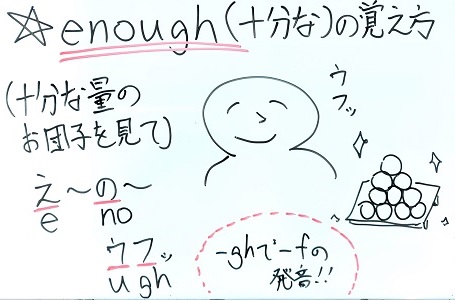 ☆enough(十分な)の覚え方
(十分な量の
お団子を見て)
ウフッ
え〜の〜
e no
ウフッ
ugh
-ghで-fの
発音!!